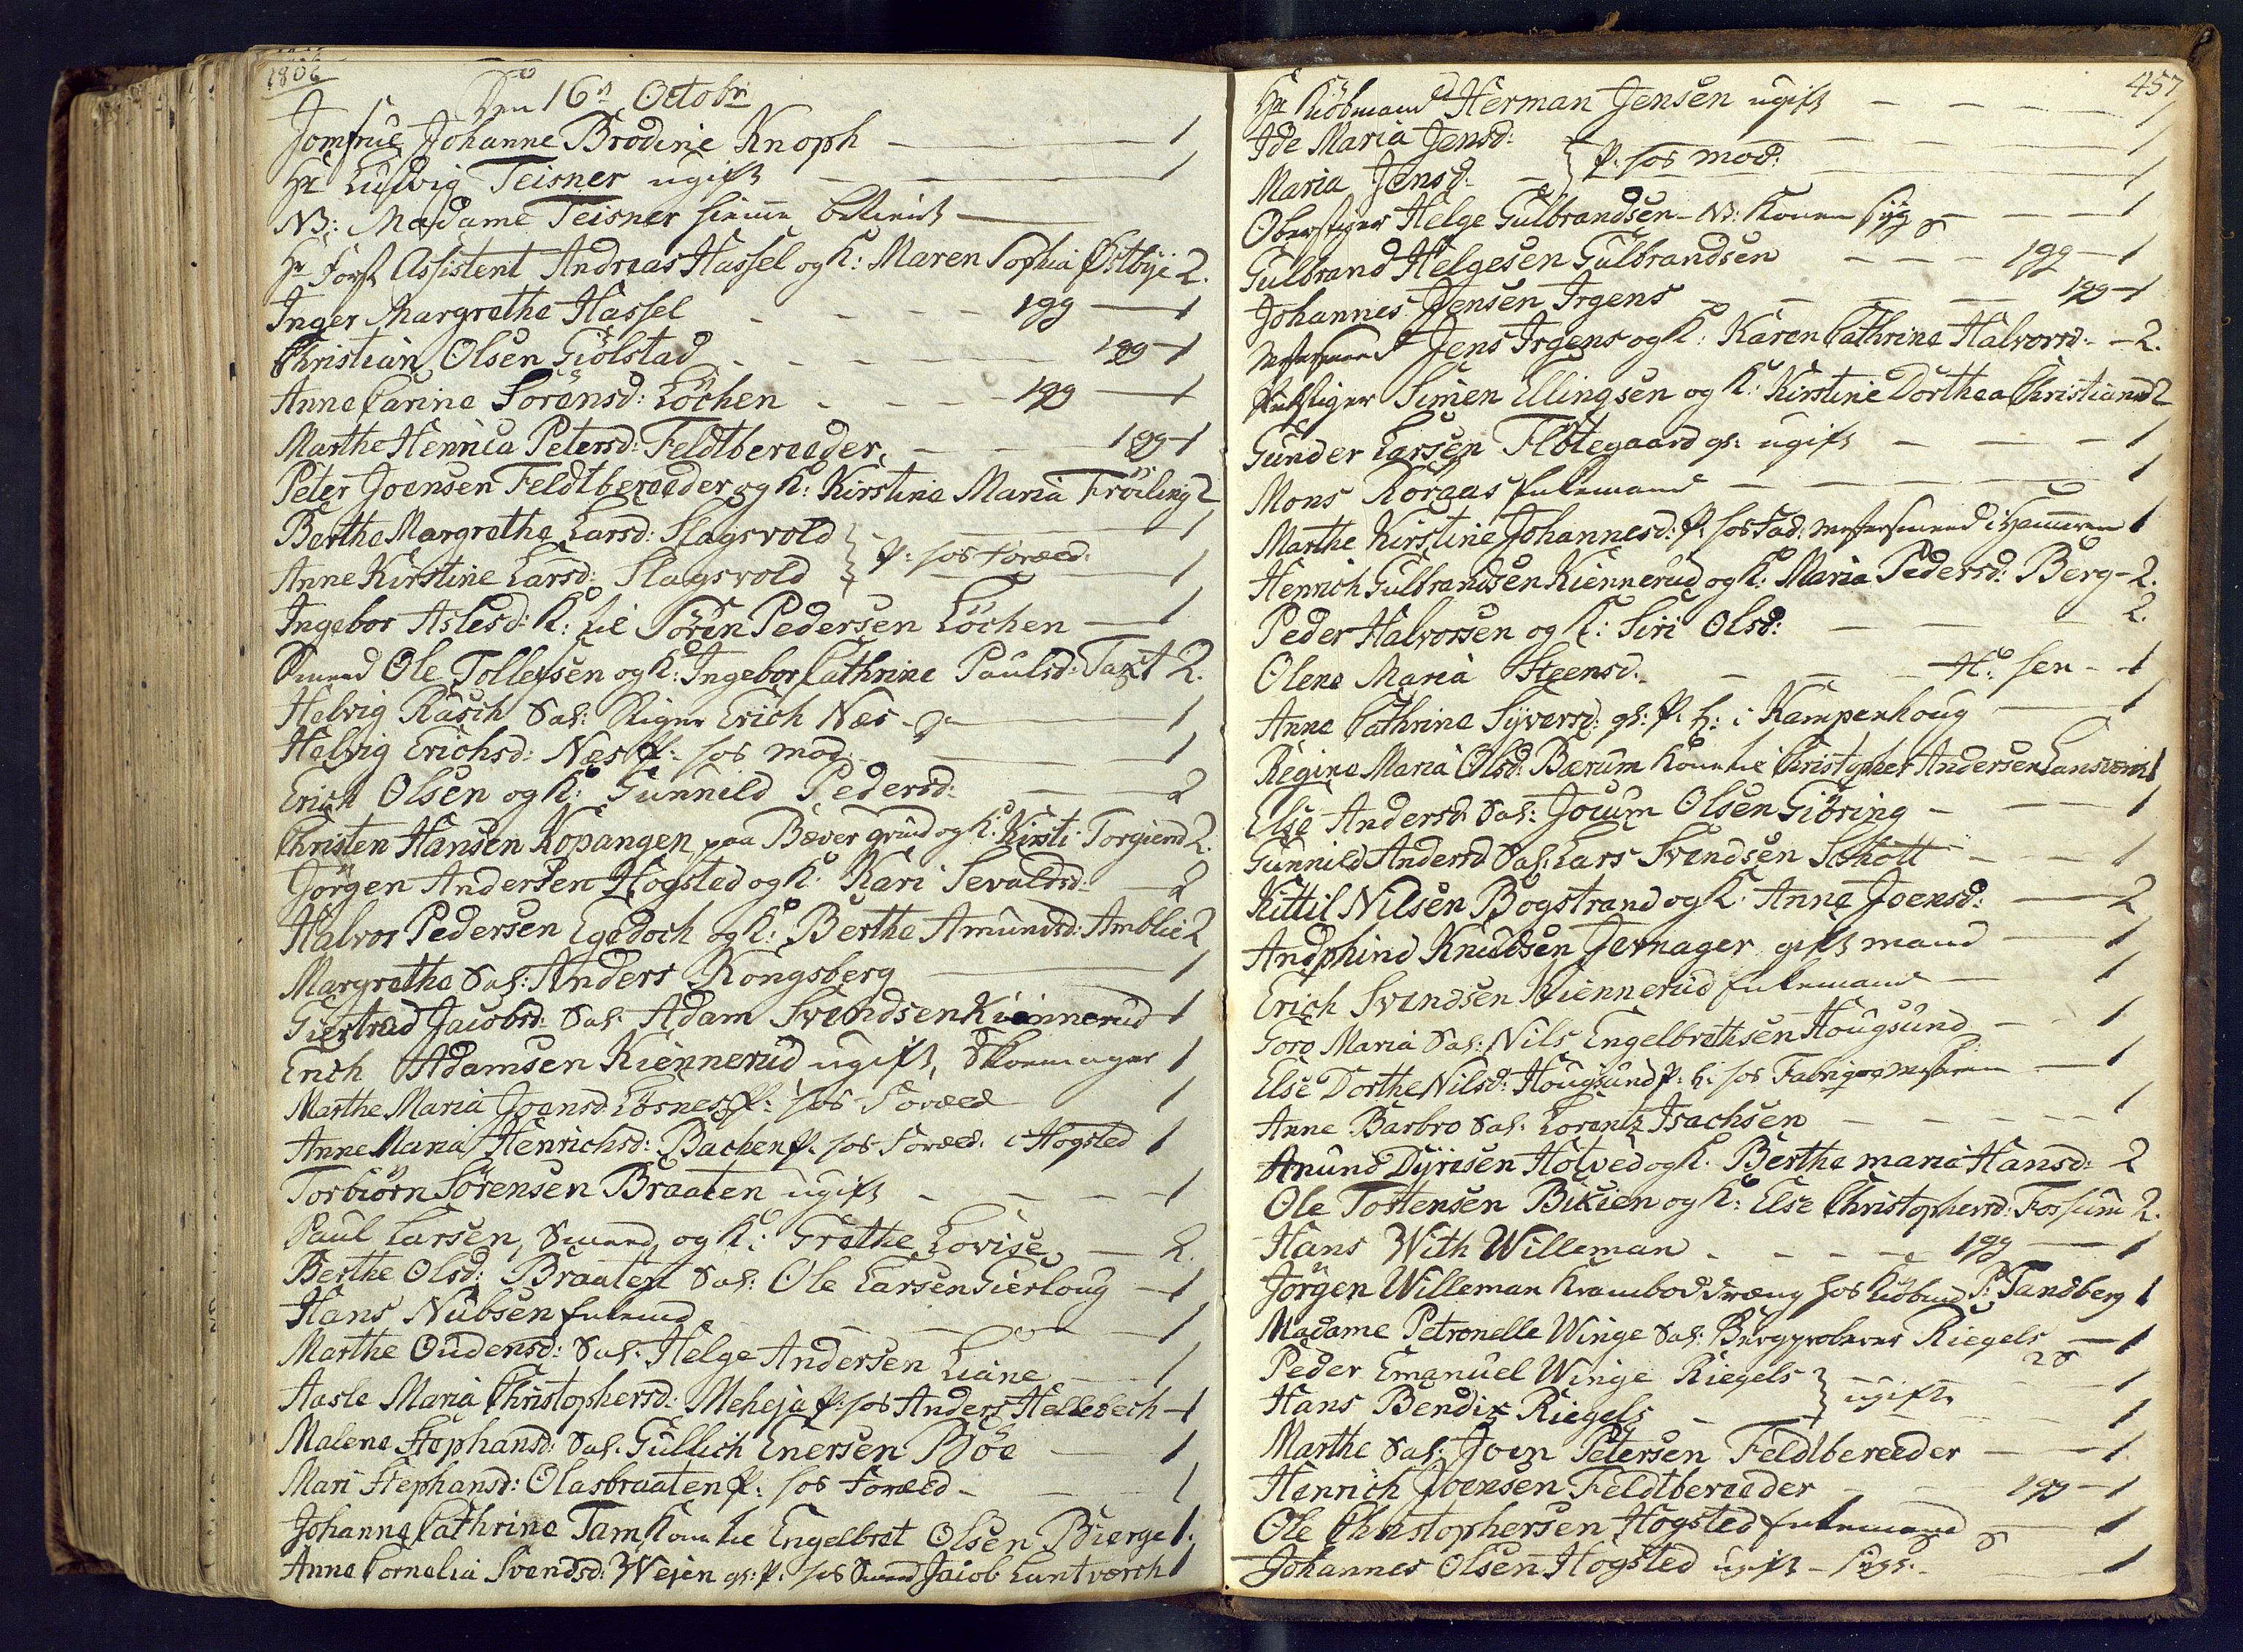 1806
Den 16de Octobr
Jomfrue Johanne Brodine Knoph — 1
Hr Ludvig Teisner ugift — 1
NB: Madame Teisner hiemme betient —
Hr Forst Assistent Andreas Hassel og K: Maren Sophia Østbÿe 2.
Inger Margrethe Hassel — 1gg — 1
Christian Olsen Giölstad — 1gg — 1
Anne Carine Sörensd: Löchen — 1gg — 1
Marthe Henrica Petersd: Feldtbereeder, — 1gg — 1
Peter Joensen Feldtbereeder og K: Kirstine Maria Fröiling 2
Berthe Margrethe Larsd: Slagsvold — 1
Anne Kirstine Larsd: Slagsvold } P: hos Foræld: — 1
Ingebor Aslesd: K: til Sören Pedersen Löchen — 1
Smed Ole Tollefsen og K: Ingebor Cathrine Paulsd: Taxt 2.
Helvig Rasch Sal: Stiger Erich Næs — 1
Helvig Erichsd: Næs P: hos mod — 1
Erich Olsen og K: Gunnild Pedersd: — 2
Christen Hansen Kopangen paa Bæver grund og K: Kirsti Torgiersd 2.
Jörgen Andersen Hogsted og K: Kari Sevaldsd: — 2
Halvor Pedersen Egedoch og K: Berthe Amundsd: Amblie 2
Margrethe Sal: Anders Kongsberg — 1
Giertrud Jacobsd: Sal: Adam Svendsen Kiennerud 1
Erich Adamsen Kiennerud ugift, Skoemager 1
Marthe Maria Joensd: Losnes P: hos Foræld 1
Anne Maria Henrichsd: Bachen P: hos Foræld: i Hogsted 1
Torbiörn Sörensen Braaten ugift — 1
Paul Larsen, Smed, og K: Grethe Lovise — 2.
Berthe Olsd: Braaten Sal: Ole Larsen Gierloug — 1
Hans Nubsen Enkemd — 1
Marthe Oudensd: Sal: Helge Andersen Liane — 1
Aasle Maria Christophersd: Meheja P: hos Anders Hellebech — 1
Malene Stephansd: Sal: Gullich Enersen Böe — 1
Mari Stephansd: Olasbraaten P: hos Foræld — 1
Johanne Cathrine Tam Kone til Engelbret Olsen Bierge 1.
Anne Cornelia Svendsd: Wejen gl: P: hos Smed Jacob Luntværch 1
457
Hr Kiöbmand Herman Jensen ugift — 1
Ide Maria Jensd: — 1
Maria Jensd: } P: hos mod: — 1
Oberstiger Helge Gulbrandsen — NB: Konen sÿg — 1
Gulbrand Helgesen Gulbrandsen — 1gg — 1
Johannes Jensen Irgens — 1gg — 1
Mestersmed Jens Irgens og K: Karen Cathrine Halvorsd: — 2.
Stiger Simen Ellingsen og K: Kirstine Dorthea Christiansd 2
Gunder Larsen Flötegaard gl: ugift — 1
Mons Roraas Enkemand — 1
Marthe Kirstine Johannesd: P: hos Fad: Mestersmed i Hammeren 1
Henrich Gulbrandsen Kiennerud og K: Maria Pedersd: Berg — 2.
Peder Halvorsen og K: Siri Olsd: — 2.
Olene Maria Steensd: — H: sen — 1
Anne Cathrine Syversd: gl: P: h: i Kampenhoug — 1
Regine Maria Olsd: Bærum Kone til Christopher Andersen 1
Else Andersd: Sal: Jocum Olsen Giöring — 1
Gunnild Andersd Sal: Lars Svendsen Schott — 1
Kittil Nilsen Bogstrand og K: Anne Joensd: — 2
Andphind Knudsen Jernager gift mand — 1
Erich Svendsen Kiennerud Enkemand — 1
Goro Maria Sal: Nils Engelbrethsen Hougsund — 1
Else Dorthe Nilsd: Hougsund P: h: hos — 1
Anne Barbro Sal: Lorentz Isachsen — 1
Anund Dÿresen Holtved og K: Berthe maria Hansd: 2
Ole Tostensen Bikien og K: Else Christophersd: Fossum 2.
Hans With Willeman — 1gg — 1
Jörgen Willeman Krambod dreng hos Kiöbmd P: Tandberg 1
Madame Petronelle Winge Sal: Bergproberer Riegels — 1
Peder Emanuel Winge Riegels — 1
Hans Bendix Riegels } ugifte — 1
Marthe Sal: Joen Petersen Feldtbereeder — 1
Henrich Joensen Feldtbereeder — 1gg — 1
Ole Christophersen Hogsted Enkemand — 1
Johannes Olsen Hogsted ugift — 1